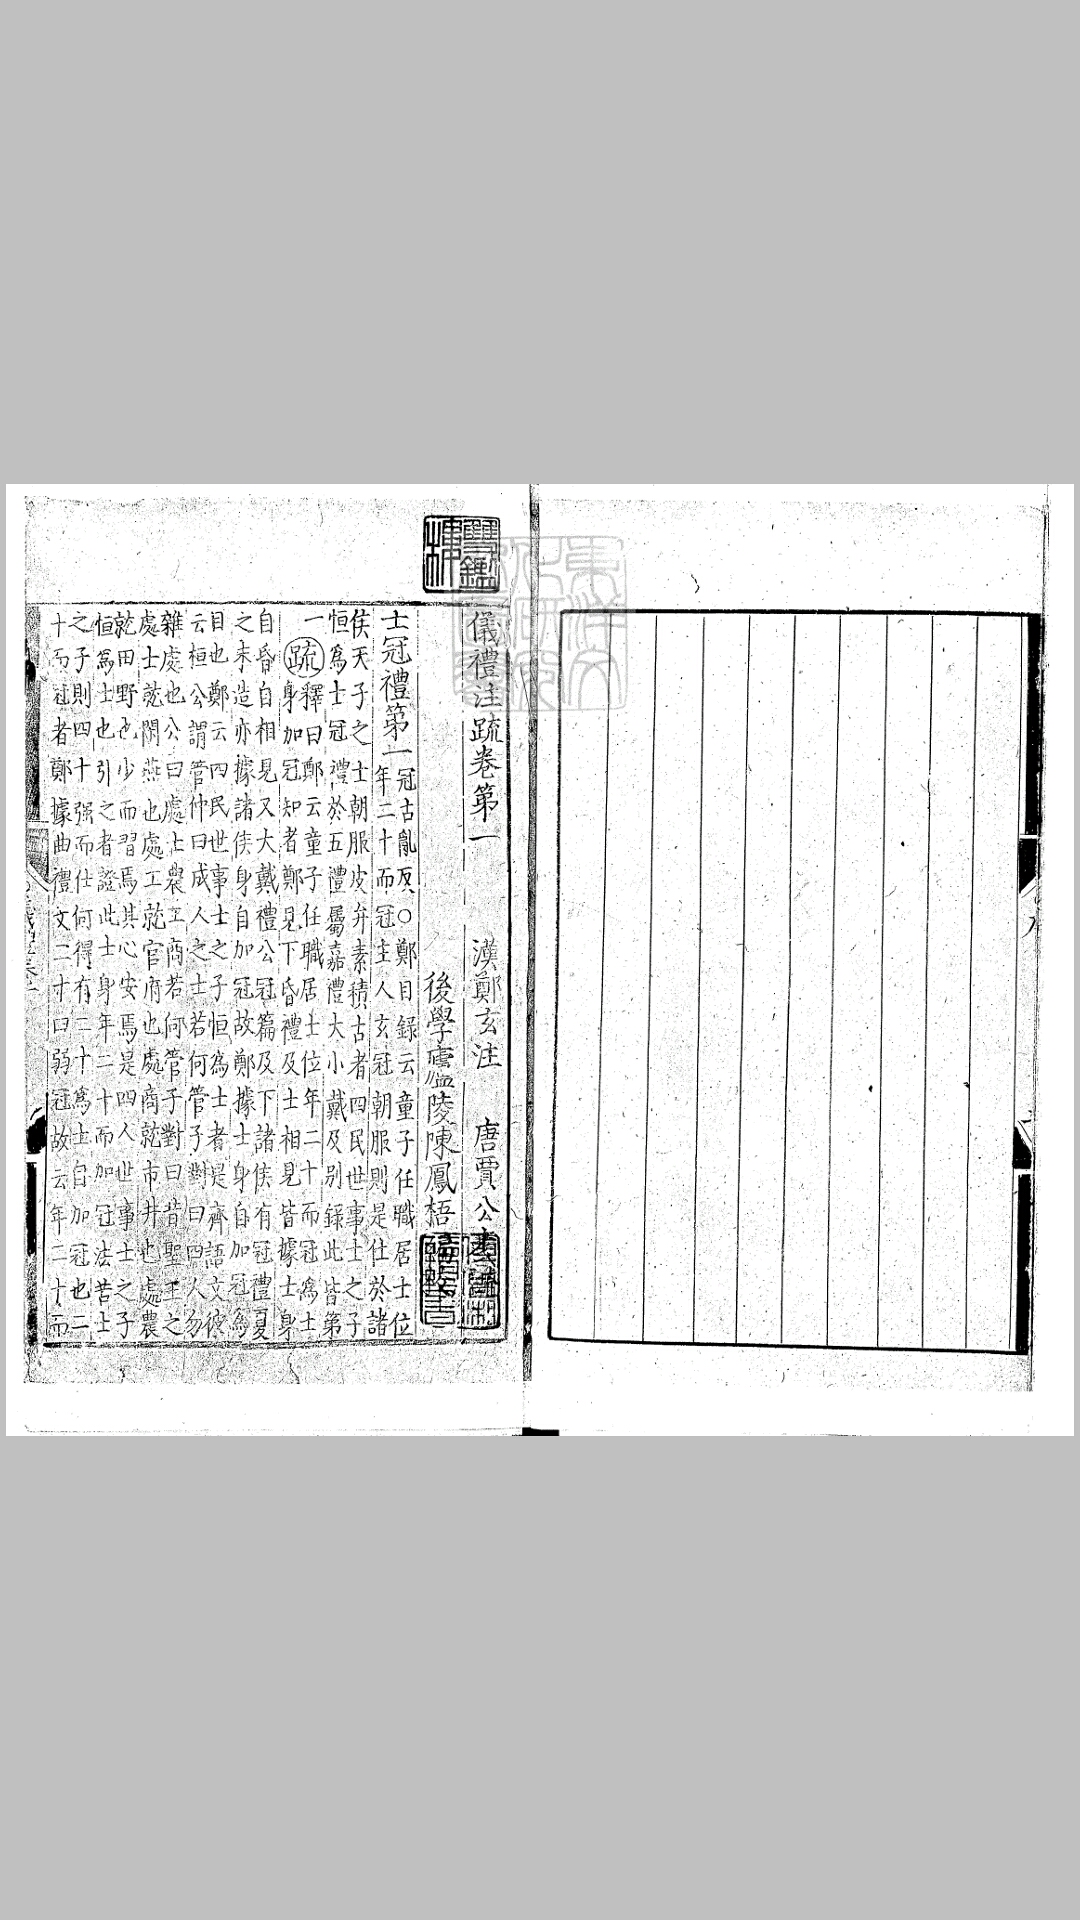 儀禮注疏卷第一
漢鄭玄注 唐賈公彥疏
後學廬陵陳鳳梧
士冠禮第一
冠古亂反○鄭目錄云童子任職居士位
年二十而冠主人玄冠朝服則是仕於諸
侯天子之士朝服皮弁素積古者四民世事士之子
恒爲士冠禮於五禮屬嘉禮大小戴及別錄此皆第
一疏釋曰鄭云童子任職居士位年二十而冠爲士
身加冠知者鄭見下昏禮及士相見皆據士身
自昏自相見又大戴禮公冠篇及下諸侯有冠禮夏
之末造亦據諸侯身自加冠故鄭據士身自加冠爲
目也鄭云四民世事士之子恒爲士者是齊語文彼
云桓公謂管仲曰成人之士若何管子對曰四人勿
雜處也公曰處士農工商若何管子對曰昔聖王之
處士就閒燕也處工就官府也處商就市井也處農
就田野也少而習焉其心安焉是四人世事士之子
恒爲士也引之者證此士身年二十而加冠法若士
之子則四十强而仕何得有二十爲士自加冠也二
十而冠者鄭據曲禮文二十曰弱冠故云年二十而